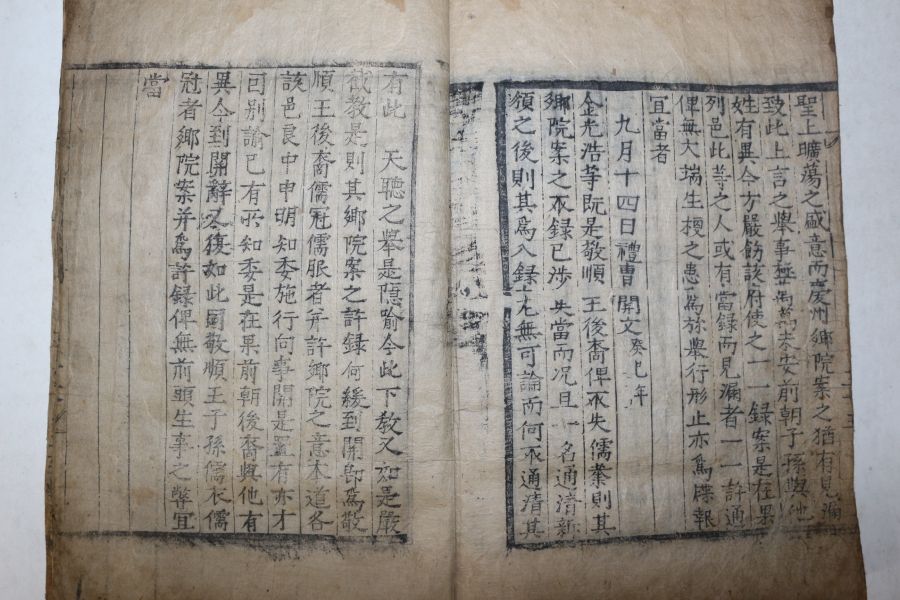 聖上曠蕩之盛意而慶州鄉院案之猶有見漏
致此上言之舉事極爲萬萬未安前朝子孫與他
姓有異今方嚴飭該府使之一一錄案是在果
列邑此等之人或有當錄而見漏者一一許通
俾無大端生梗之患爲旀舉行形止亦爲牒報
宜當者
九月十四日禮曹 關文癸巳年
金光浩等旣是敬順 王後裔俾不失儒業則其
鄉院案之不錄已涉失當而况且一名通清新
頒之後則其爲入錄尤無可論而何不通清其
有此 天聽之舉是隱喻今此下教又如是嚴
截教是則其鄉院案之許錄何緩到關即爲敬
順王後裔儒冠儒服者并許鄉院之意本道各
該邑良中申明知委施行向事關是置有亦才
因別諭已有所知委是在果前朝後裔與他有
異今到關辭又復如此同敬順王子孫儒衣儒
冠者鄉院案并爲許錄俾無前頭生事之弊宜
當